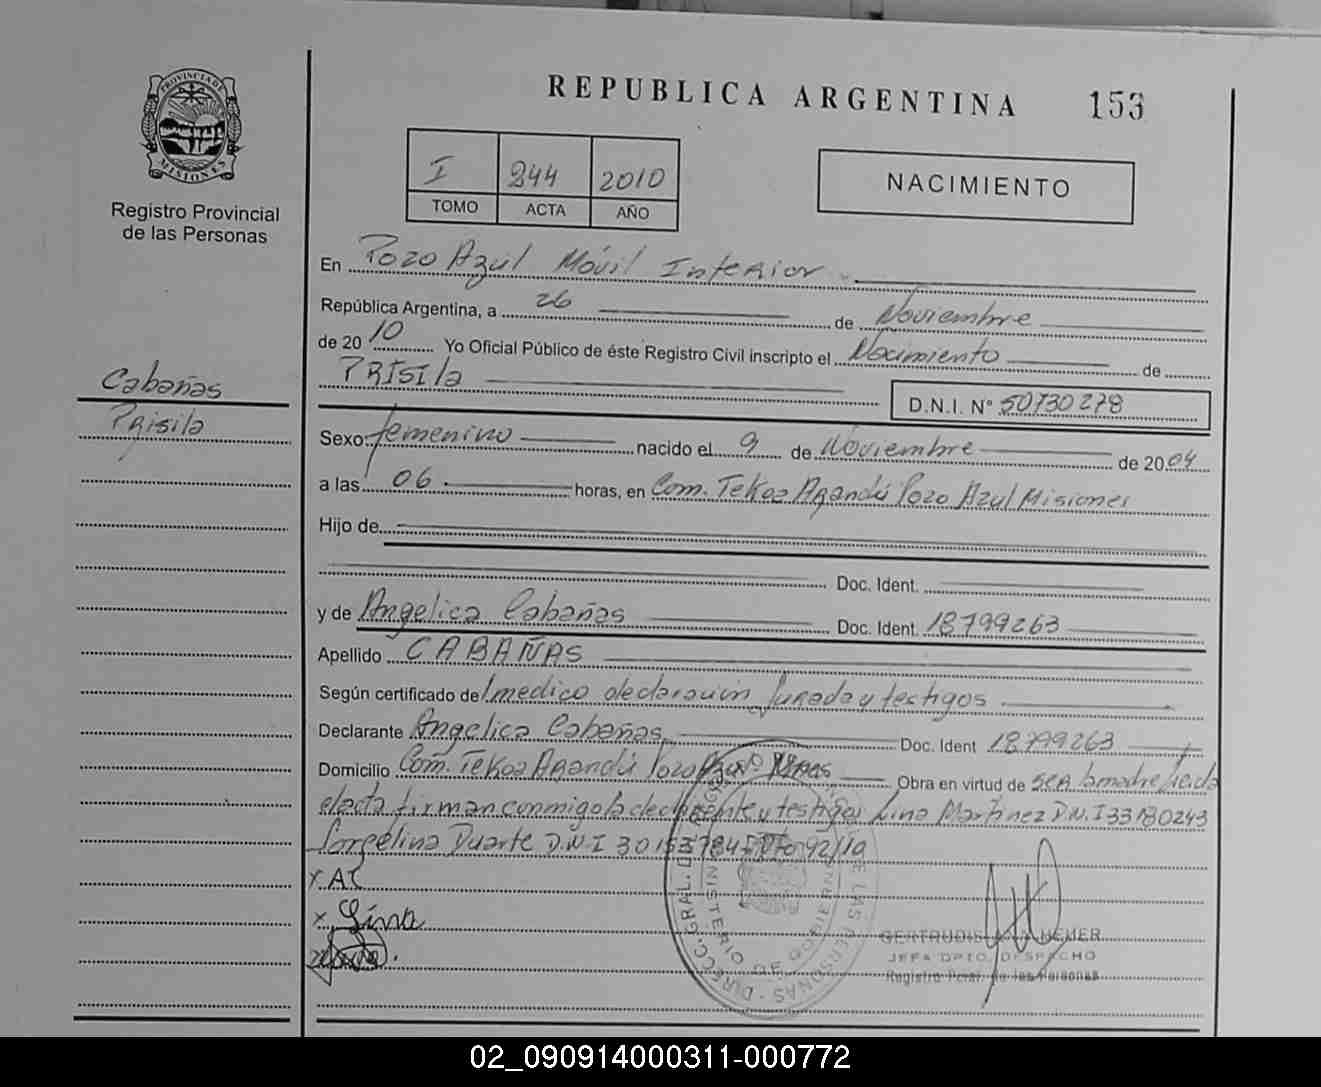 REPUBLICA ARGENTINA 153
PROVINCIA DE
MISIONES
Registro Provincial
de las Personas
I 244 2010
TOMO ACTA AÑO
NACIMIENTO
En Pozo Azul Móvil Interior
República Argentina, a 26 de Noviembre
de 2010 Yo Oficial Público de éste Registro Civil inscripto el Nacimiento de
PRISila
D.N.I. N° 50730278
Cabañas
Prisila
Sexo: femenino nacido el 9 de Noviembre de 2004
a las 06 horas, en Com. Tekoa Arandú Pozo Azul Misiones
Hijo de
Doc. Ident.
y de Angelica Cabañas Doc. Ident. 18799263
Apellido CABAÑAS
Según certificado de medico declaración Jurada y testigos
Declarante Angelica Cabañas Doc. Ident 18799263
Domicilio Com. Tekoa Arandú Pozo Azul Mnes Obra en virtud de ser la madre leida
el acta firman conmigo la declarante y testigos Lina Martinez D.N.I 33180243
Duarte D.N.I 30153784 Dto 92/10
x AC
x Lina
DIRECC. GRAL. DEL REGISTRO DE LAS PERSONAS
MINISTERIO DE GOBIERNO
GERTRUDIS HEMER
JEFA DPTO. DESPACHO
Registro Pcial. de las Personas
02_090914000311-000772